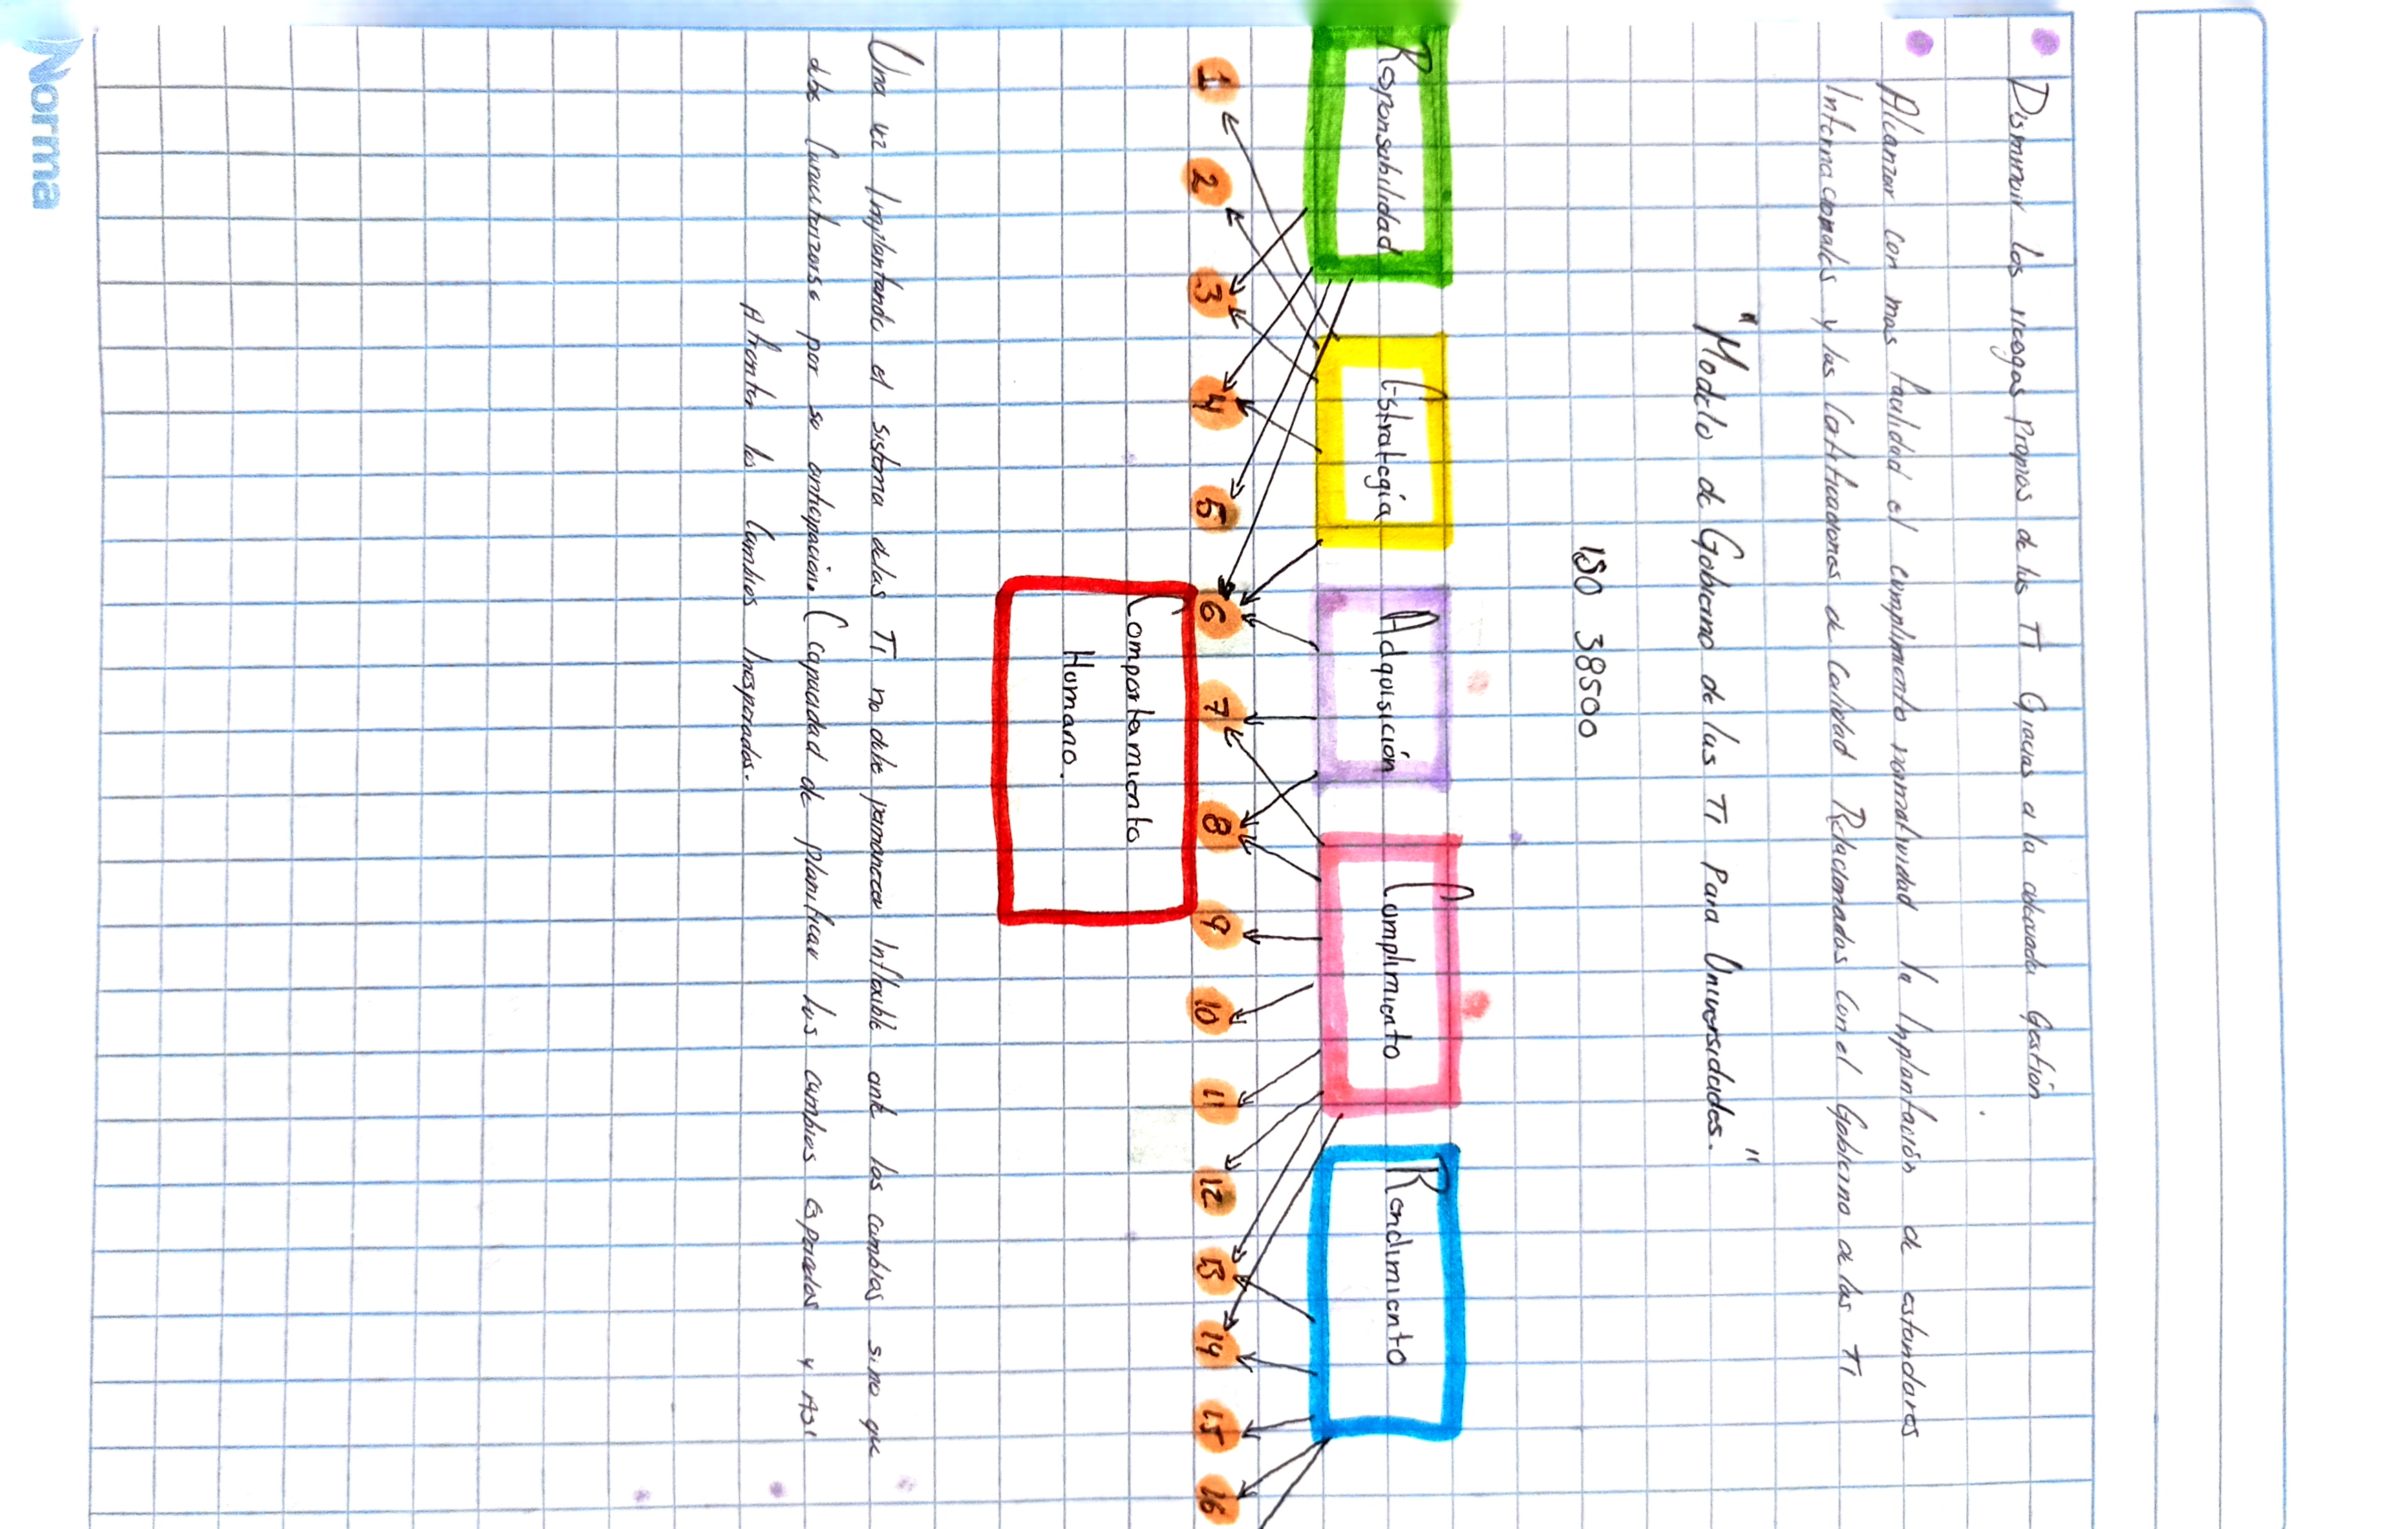 Disminuir los riesgos propios de las TI Gracias a la adecuada Gestión
Alcanzar con mas facilidad el cumplimiento normatividad la Inplantación de estandares
Internacionales y las Certificaciones de Calidad Relacionados con el Gobierno de las TI
"Modelo de Gobierno de las TI Para Universidades."
ISO 38500
Responsabilidad Estrategia Adquisición Cumplimiento Rendimiento
1 2 3 4 5 6 7 8 9 10 11 12 13 14 15 16
Comportamiento
Humano.
Una vez Implantando el sistema delas TI no debe permanecer Inflexible ante los cambios sino que
debe Caracterizarse por su anticipación. ( capacidad de planificar los cambios esperados y Asi
Afrontar los Cambios Inesperados.
Norma